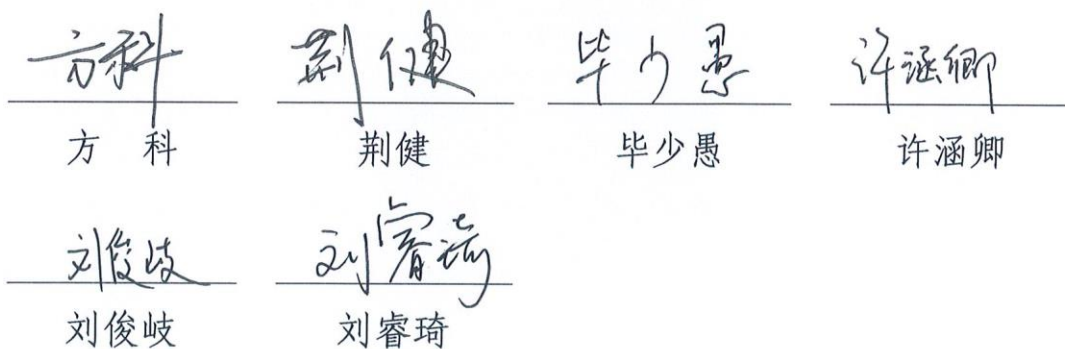 方科 荆健 毕少愚 许涵卿
方 科 荆健 毕少愚 许涵卿
刘俊岐 刘睿琦
刘俊岐 刘睿琦